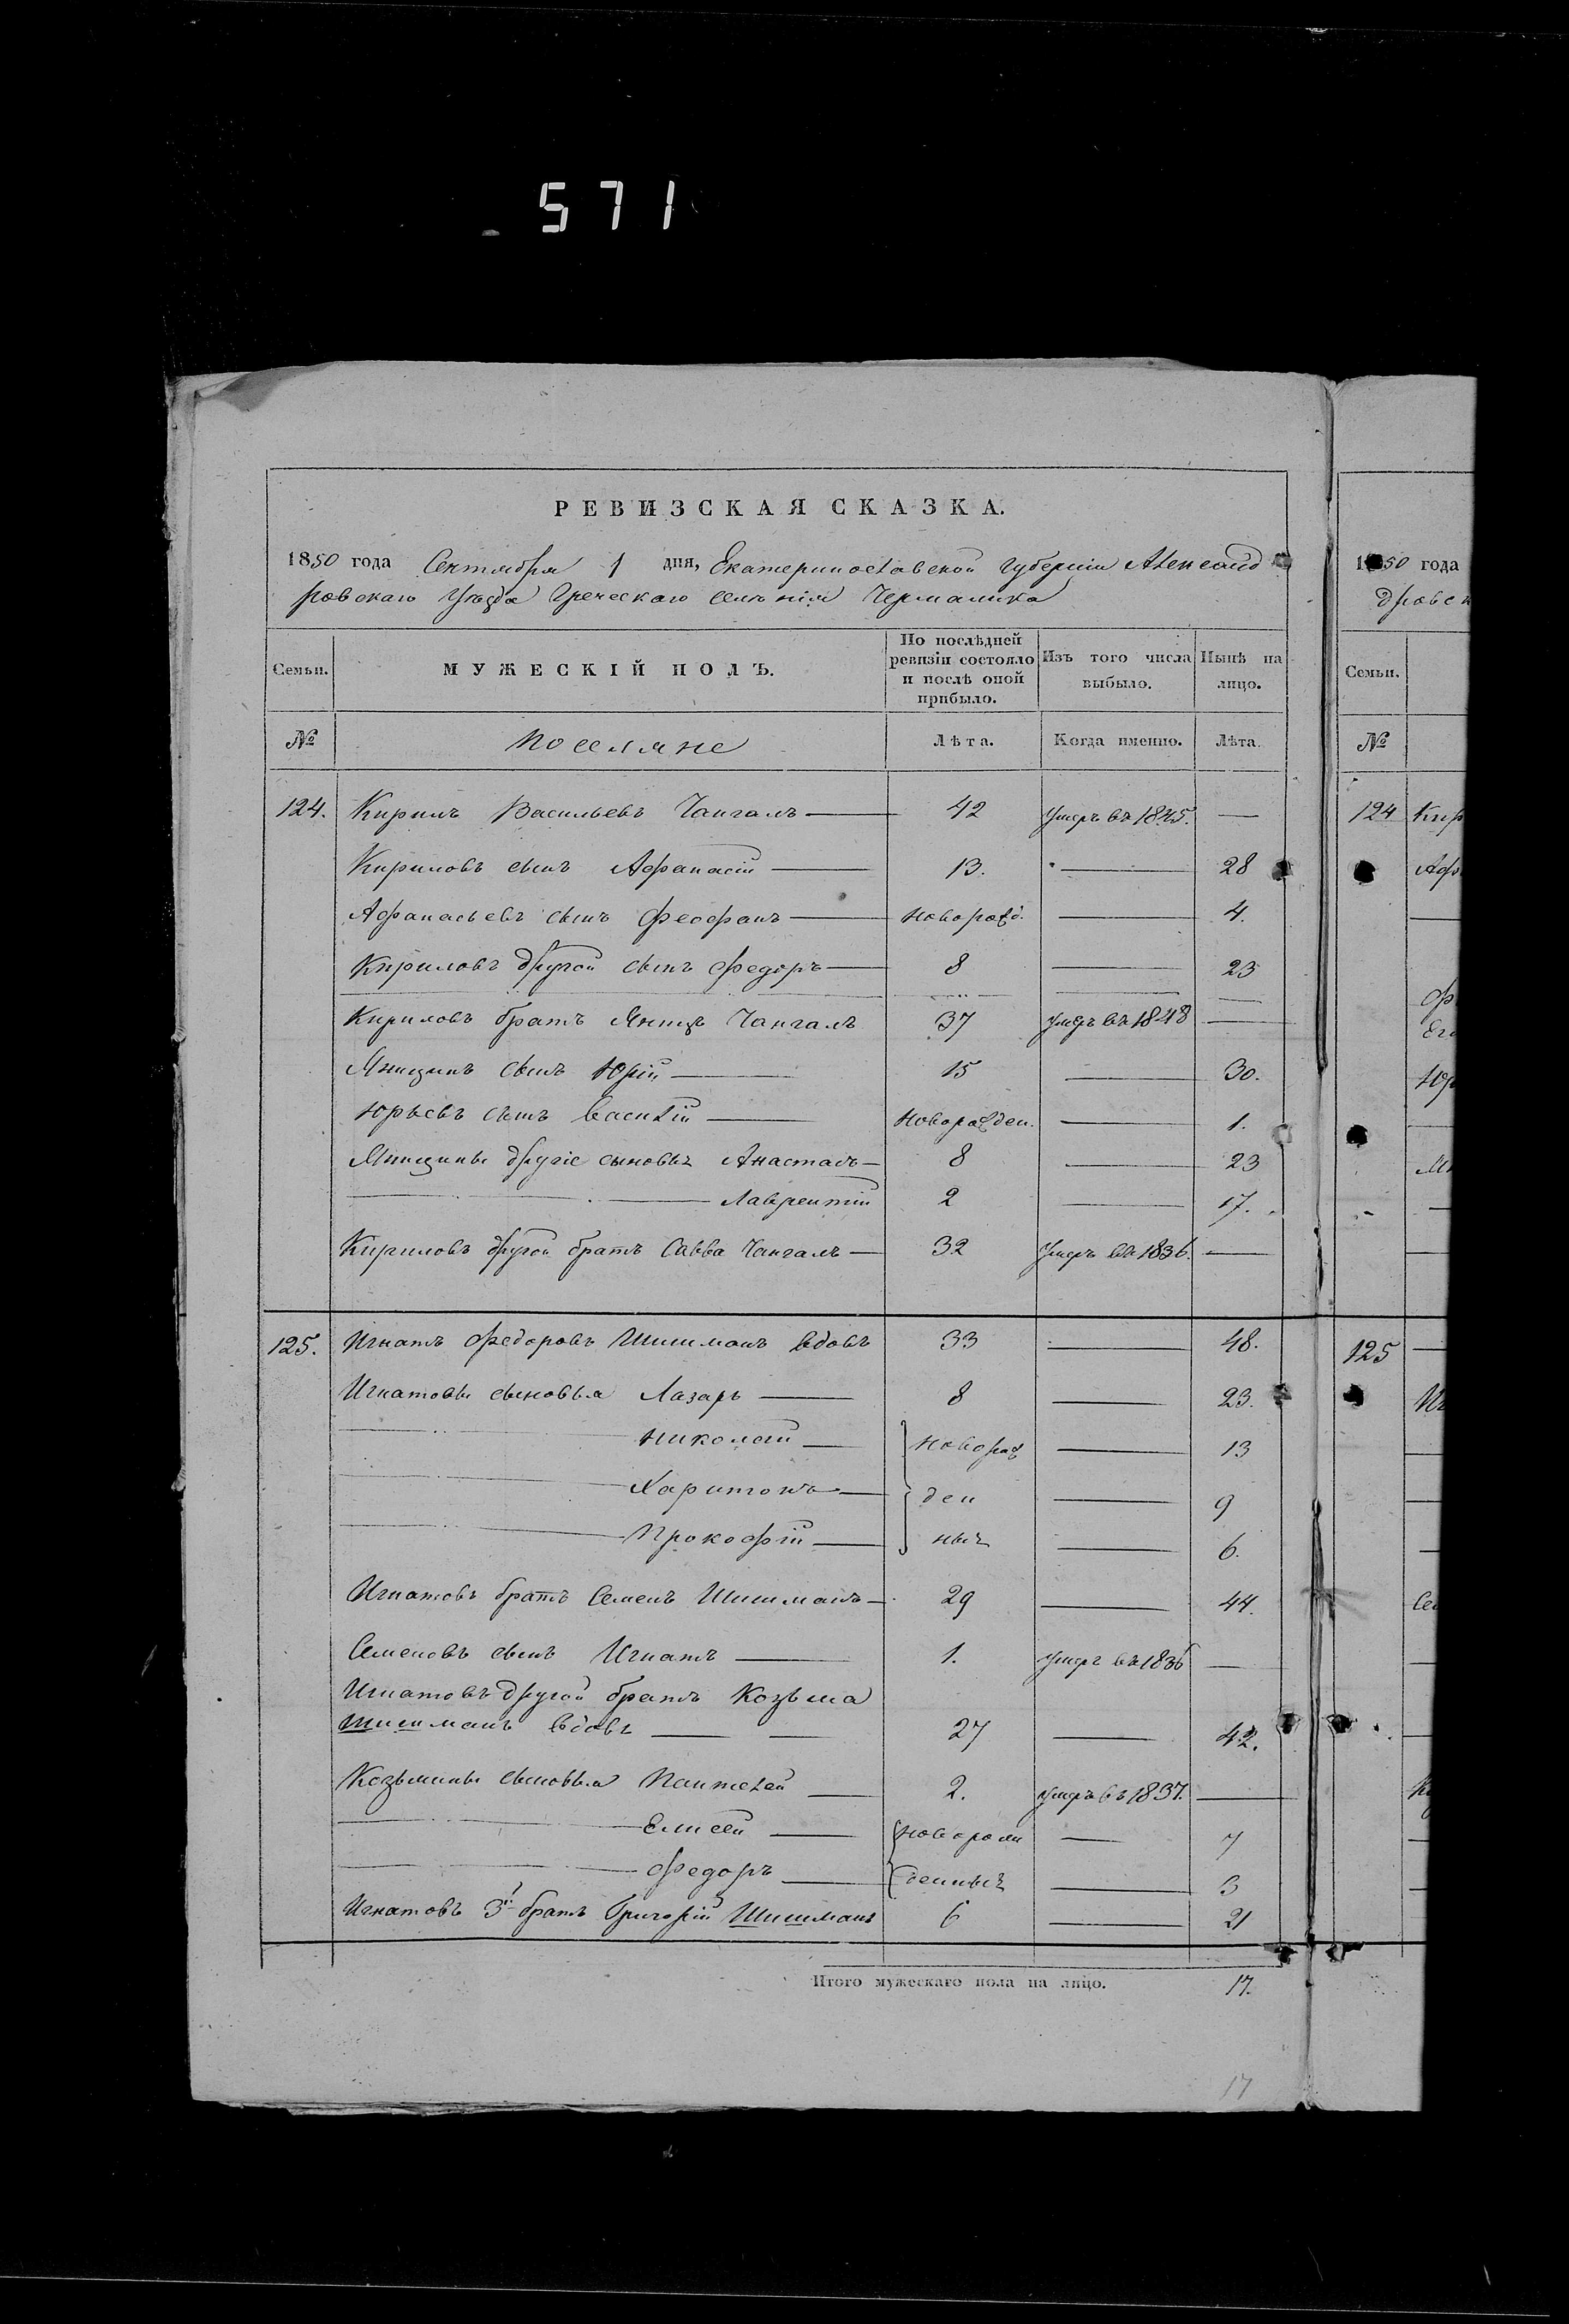 571
РЕВИЗСКАЯ СКАЗКА.
1850 года Сентября 1 дня, Екатеринославской Губернии Александ
ровскаго Уѣзда Греческаго селѣнія Чермалыка
Семьи. МУЖЕСКІЙ ПОЛЪ. По послѣдней ревизіи состояло и послѣ оной прибыло. Изъ того числа выбыло. Нынѣ на лицо.
№ Поселяне Лѣта. Когда именно. Лѣта.
124. Кирилъ Васильевъ Чангалъ 42 умеръ въ 1845. —
Кириловъ сынъ Афанасій 13. — 28
Афанасьевъ сынъ Феофанъ новорожд. — 4.
Кириловъ другой сынъ Федоръ 8 — 23
Кириловъ братъ Чангалъ 37 умеръ въ 1848 —
сынъ Юрій 15 — 30.
Юрьевъ сынъ Василій новорожден. — 1.
другіе сыновья Анастасъ 8 — 23
Лаврентій 2 — 17.
Кириловъ другой братъ Савва Чангалъ 32 умеръ въ 1836. —
125. Игнатъ Федоровъ Шишманъ вдовъ 33 — 48.
Игнатовы сыновья Лазарь 8 — 23.
Николай новорож — 13
Харитонъ ден — 9
Прокофій ныхъ — 6.
Игнатовъ братъ Семенъ Шишманъ 29 — 44.
Семеновъ сынъ Игнатъ 1. умеръ въ 1836 —
Игнатовъ другой братъ Козьма
Шишманъ вдовъ 27 — 42.
Козьмины сыновья Пантелей 2. умеръ въ 1837. —
Елисей новорож — 7
Федоръ денныхъ — 3
Игнатовъ 3й братъ Григорій Шишманъ 6 — 21
Итого мужескаго пола на лицо. 17.
17
1850 года
дровск
Семьи.
№
124 Кир
Аф
Юр
125
Иг
Сем